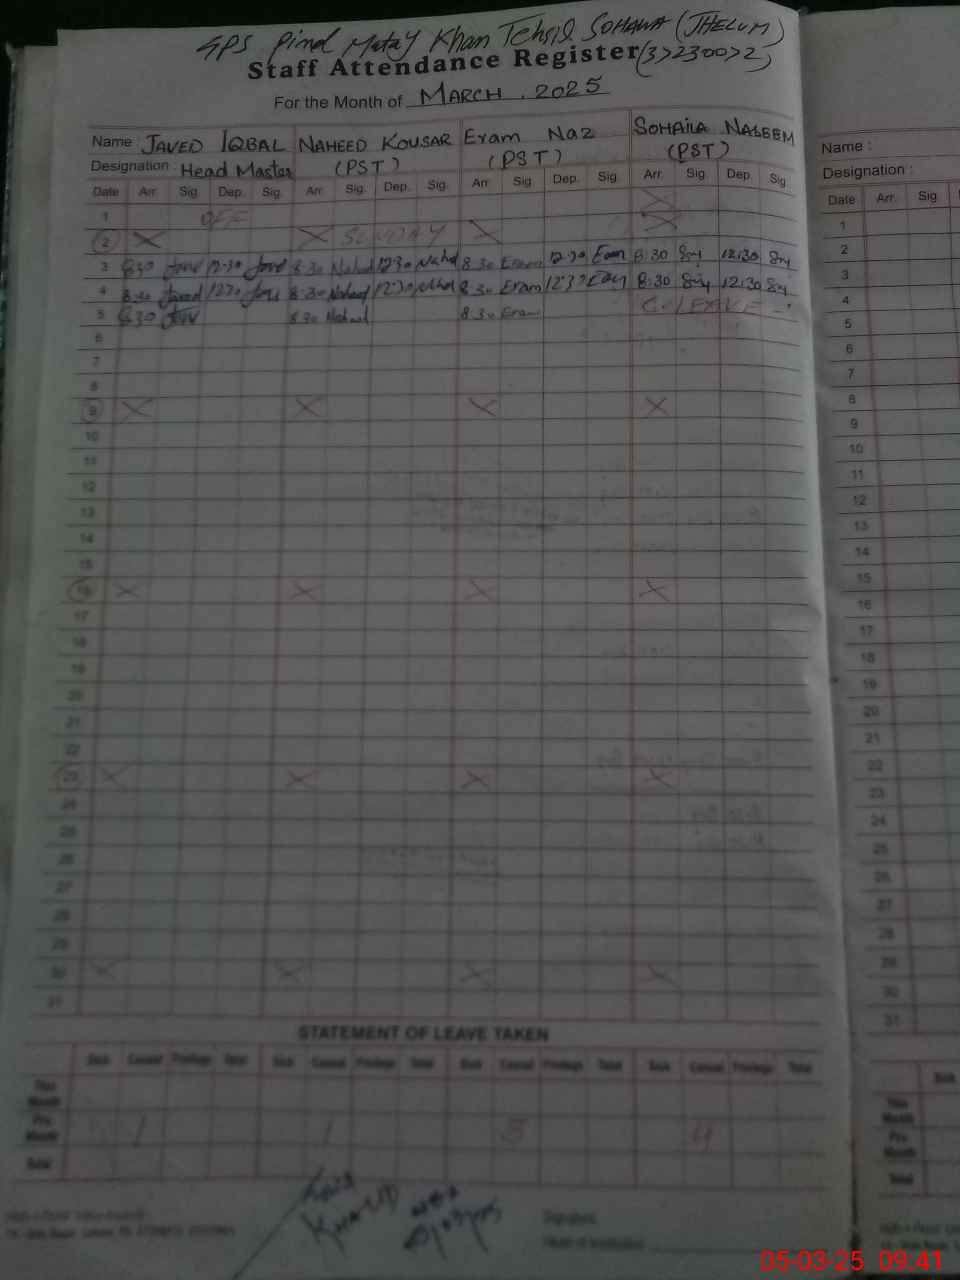 GPS Pind Matay Khan Tehsil SOHAWA (JHELUM)
Staff Attendance Register (37230072)
For the Month of MARCH . 2025
Name : JAVED IQBAL NAHEED KOUSAR Eram Naz SOHAILA NASEEM
Designation : Head Master (PST) (PST) (PST)
Date Arr. Sig. Dep. Sig. Arr. Sig. Dep. Sig. Arr. Sig. Dep. Sig. Arr. Sig. Dep. Sig.
1 OFF
2 SUNDAY
3 8:30 Javed 12:30 Javed 8:30 Nahed 12:30 Nahed 8:30 Eram 12:30 Eram 8:30 12:30
4 8:30 Javed 12:30 8:30 Nahed 12:30 Nahed 8:30 Eram 12:30 8:30 12:30
5 8:30 8:30 Nahed 8:30 Eram C. LEAVE
6
7
8
9
10
11
12
13
14
15
16
17
18
19
20
21
22
23
24
25
26
27
28
29
30
31
STATEMENT OF LEAVE TAKEN
Sick Casual Privilege Total Sick Casual Privilege Total Sick Casual Privilege Total Sick Casual Privilege Total
This Month
Pre Month 1 1 5 4
Total
Signature
Name :
Designation :
Date Arr. Sig
1
2
3
4
5
6
7
8
9
10
11
12
13
14
15
16
17
18
19
20
21
22
23
24
25
26
27
28
29
30
31
Sick
This Month
Pre Month
Total
05-03-25 09:41